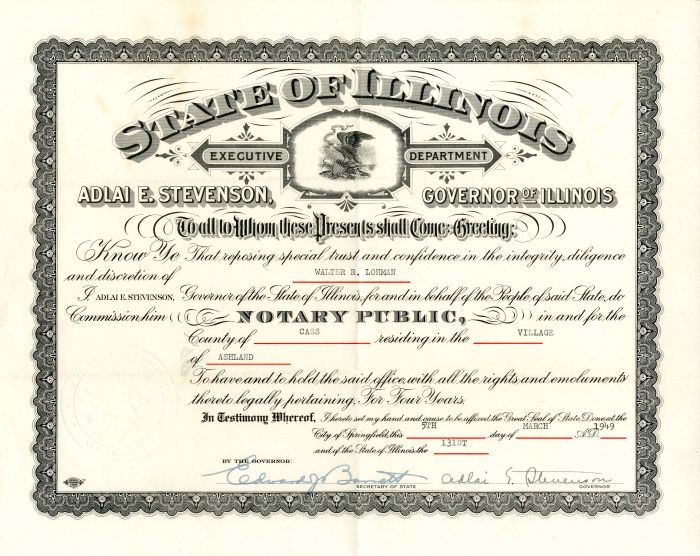 STATE OF ILLINOIS
EXECUTIVE DEPARTMENT
ADLAI E. STEVENSON, GOVERNOR OF ILLINOIS
To all to Whom these Presents shall Come: Greeting:
Know Ye That reposing special trust and confidence in the integrity, diligence
and discretion of WALTER R. LOHMAN
I, ADLAI E. STEVENSON, Governor of the State of Illinois, for and in behalf of the People of said State, do
Commission him NOTARY PUBLIC, in and for the
County of CASS residing in the VILLAGE
of ASHLAND
To have and to hold the said office, with all the rights and emoluments
thereto legally pertaining, For Four Years.
In Testimony Whereof, I hereto set my hand and cause to be affixed, the Great Seal of State, Done at the
City of Springfield, this 5TH day of MARCH A.D. 1949
and of the State of Illinois, the 131ST
BY THE GOVERNOR:
Edward J Barrett Adlai E. Stevenson
SECRETARY OF STATE GOVERNOR